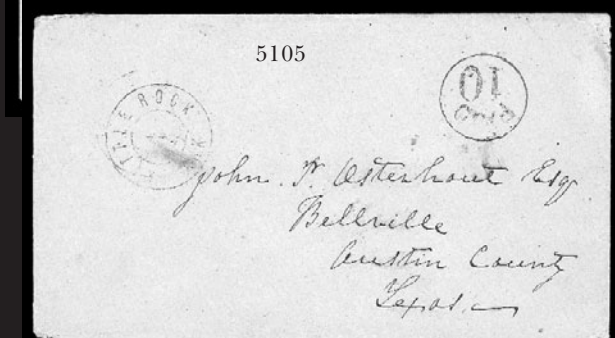 5105
LITTLE ROCK
PAID
10
John P. Osterhout Esq
Bellville
Austin County
Texas